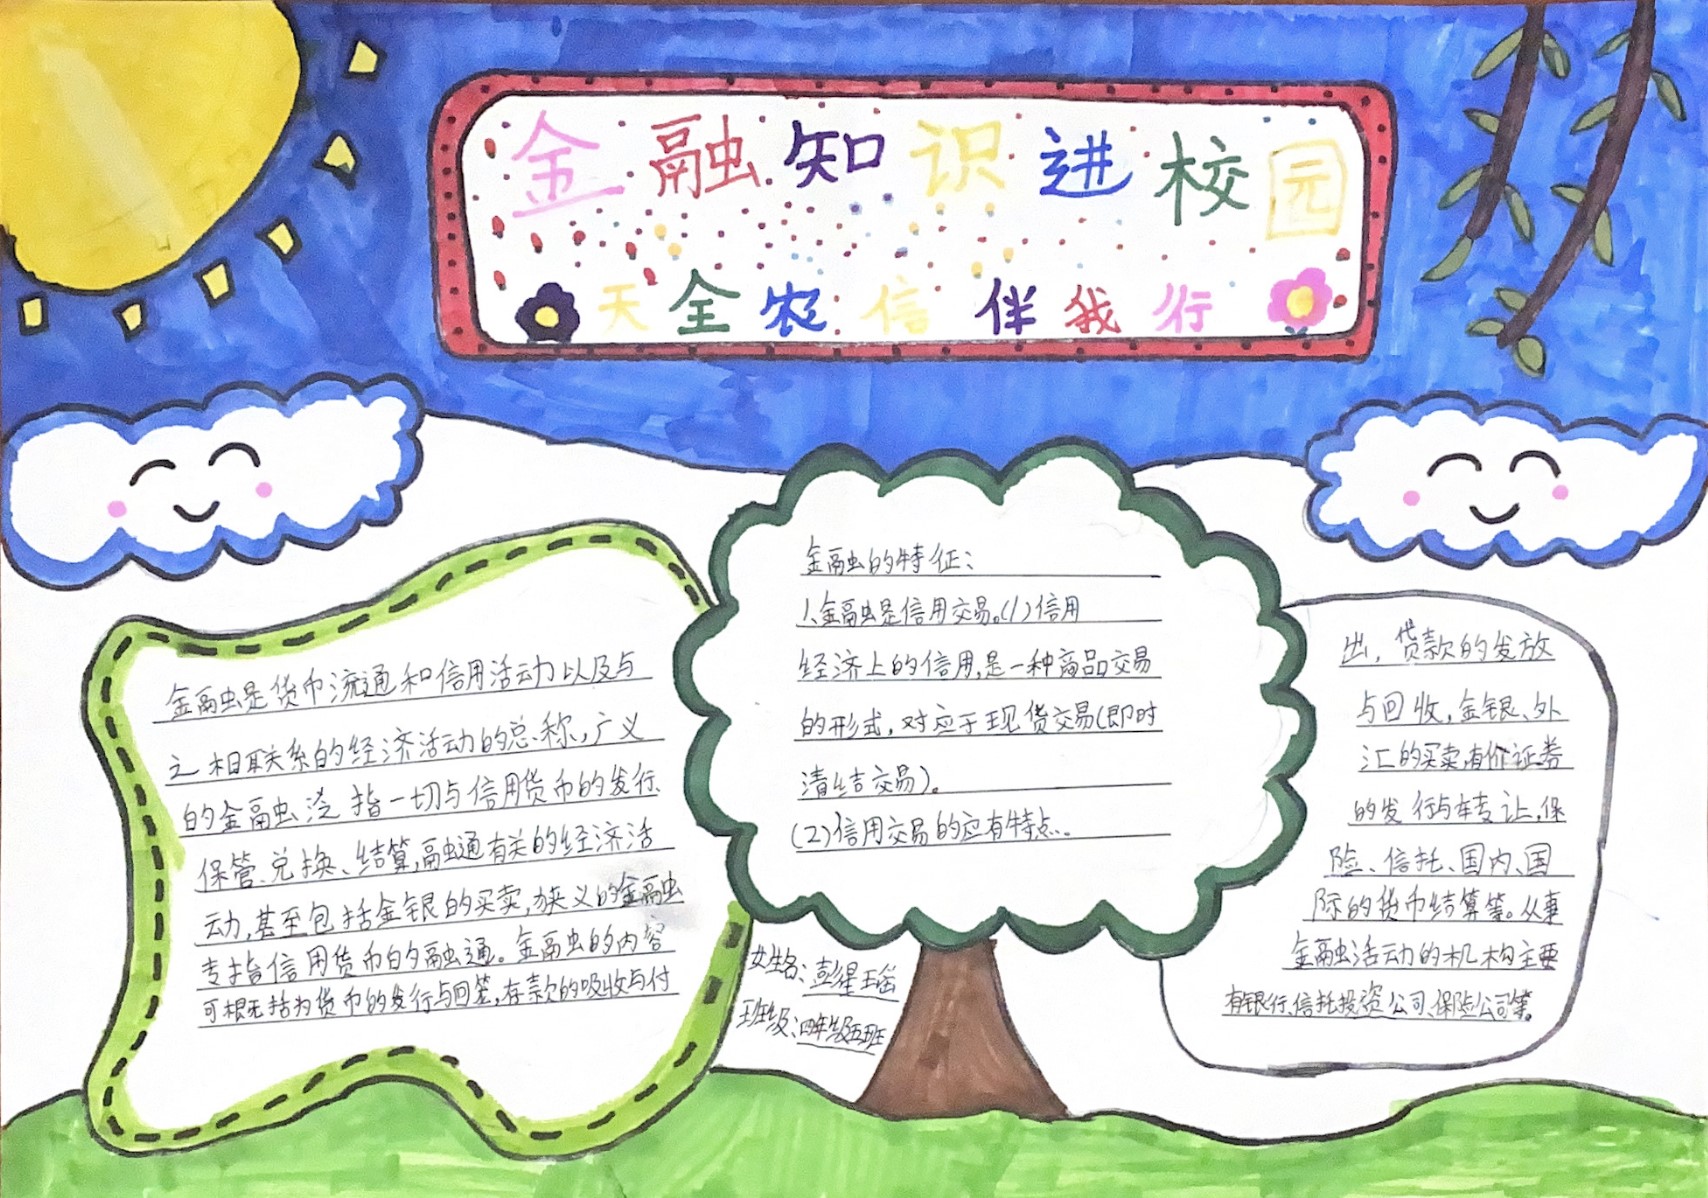 金融知识进校园
天全农信伴我行
金融是货币流通和信用活动以及与
之相联系的经济活动的总称,广义
的金融泛指一切与信用货币的发行
保管、兑换、结算,融通有关的经济活
动,甚至包括金银的买卖,狭义的金融
专指信用货币的融通。金融的内容
可概括为货币的发行与回笼,存款的吸收与付
金融的特征:
1、金融是信用交易。(1)信用
经济上的信用,是一种商品交易
的形式,对应于现货交易(即时
清结交易)。
(2)信用交易的应有特点。
姓名:彭星瑶
班级:四年级五班
出,贷款的发放
与回收,金银、外
汇的买卖,有价证券
的发行与转让,保
险、信托、国内、国
际的货币结算等。从事
金融活动的机构主要
有银行、信托投资公司、保险公司等。